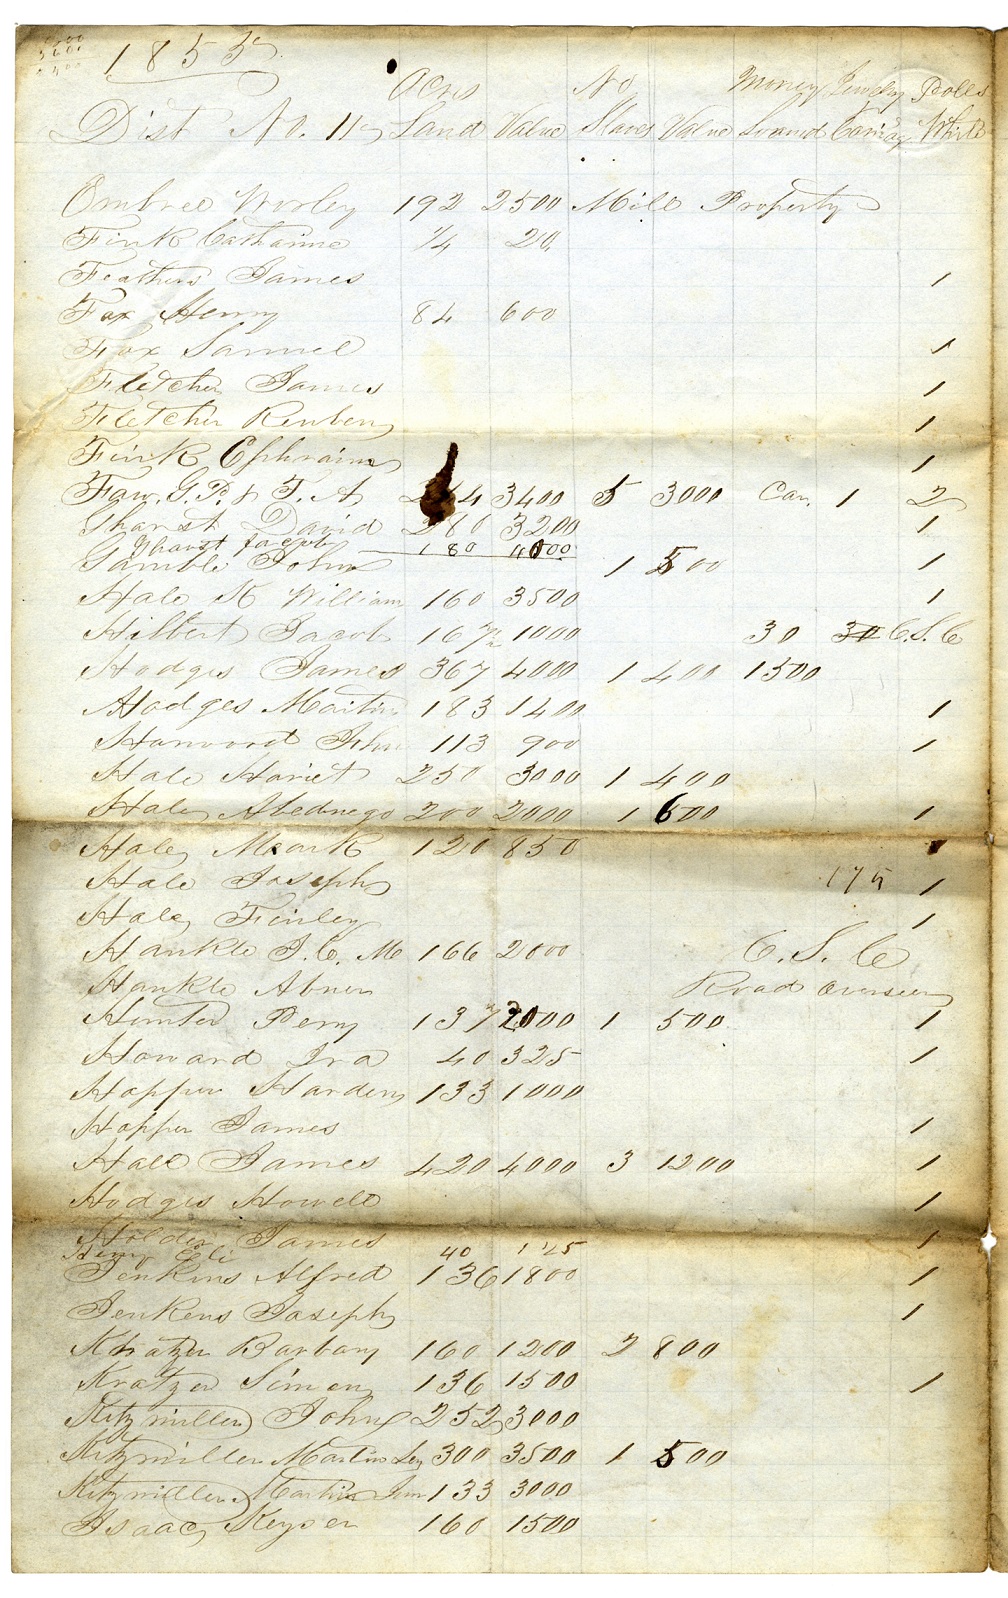 1853
Acres No Money Jewelry Polls
Dist No. 11 Land Value Slaves Value Loaned Carriag White
Embree Worley 192 2500 Mill Property
Fink Catharine 1/4 20
Feathers James 1
Fox Henry 84 600
Fox Samuel 1
Fletcher James 1
Fletcher Reuben 1
Fink Ephraim 1
Faw, G. P. & T. A 4 3400 5 3000 Car. 1 2
Gharst David 280 3200 1
Gharst Jacob 180 4000
Gamble John 1 500 1
Hale K William 160 3500 1
Hilbert Jacob 167 1000 30 30 C.S.C
Hodges James 367 4000 1 400 1500
Hodges Martin 183 1400 1
Harvord John 113 900 1
Hale Hariet 250 3000 1 400
Hale Abednego 200 2000 1 600 1
Hale Mark 120 850
Hale Joseph 175 1
Hale Finley 1
Hankle J. C. M 166 2000 C. S. C
Hankle Abner Road Overseer
Hunter Perry 137 2000 1 500 1
Howard Ira 40 325 1
Hopper Harden 133 1000
Hopper James 1
Hall James 420 4000 3 1200 1
Hodges Howell 1
Holder James 1
Henry Eli 40 125
Jenkins Alfred 136 1800 1
Jenkens Joseph 1
Kratzer Barbary 160 1200 2 800
Kratzer Simon 136 1500 1
Kitzmiller John 252 3000
Kitzmiller Martin Sen 300 3500 1 500
Kitzmiller Martin Jun 133 3000
Isaac Keyser 160 1500